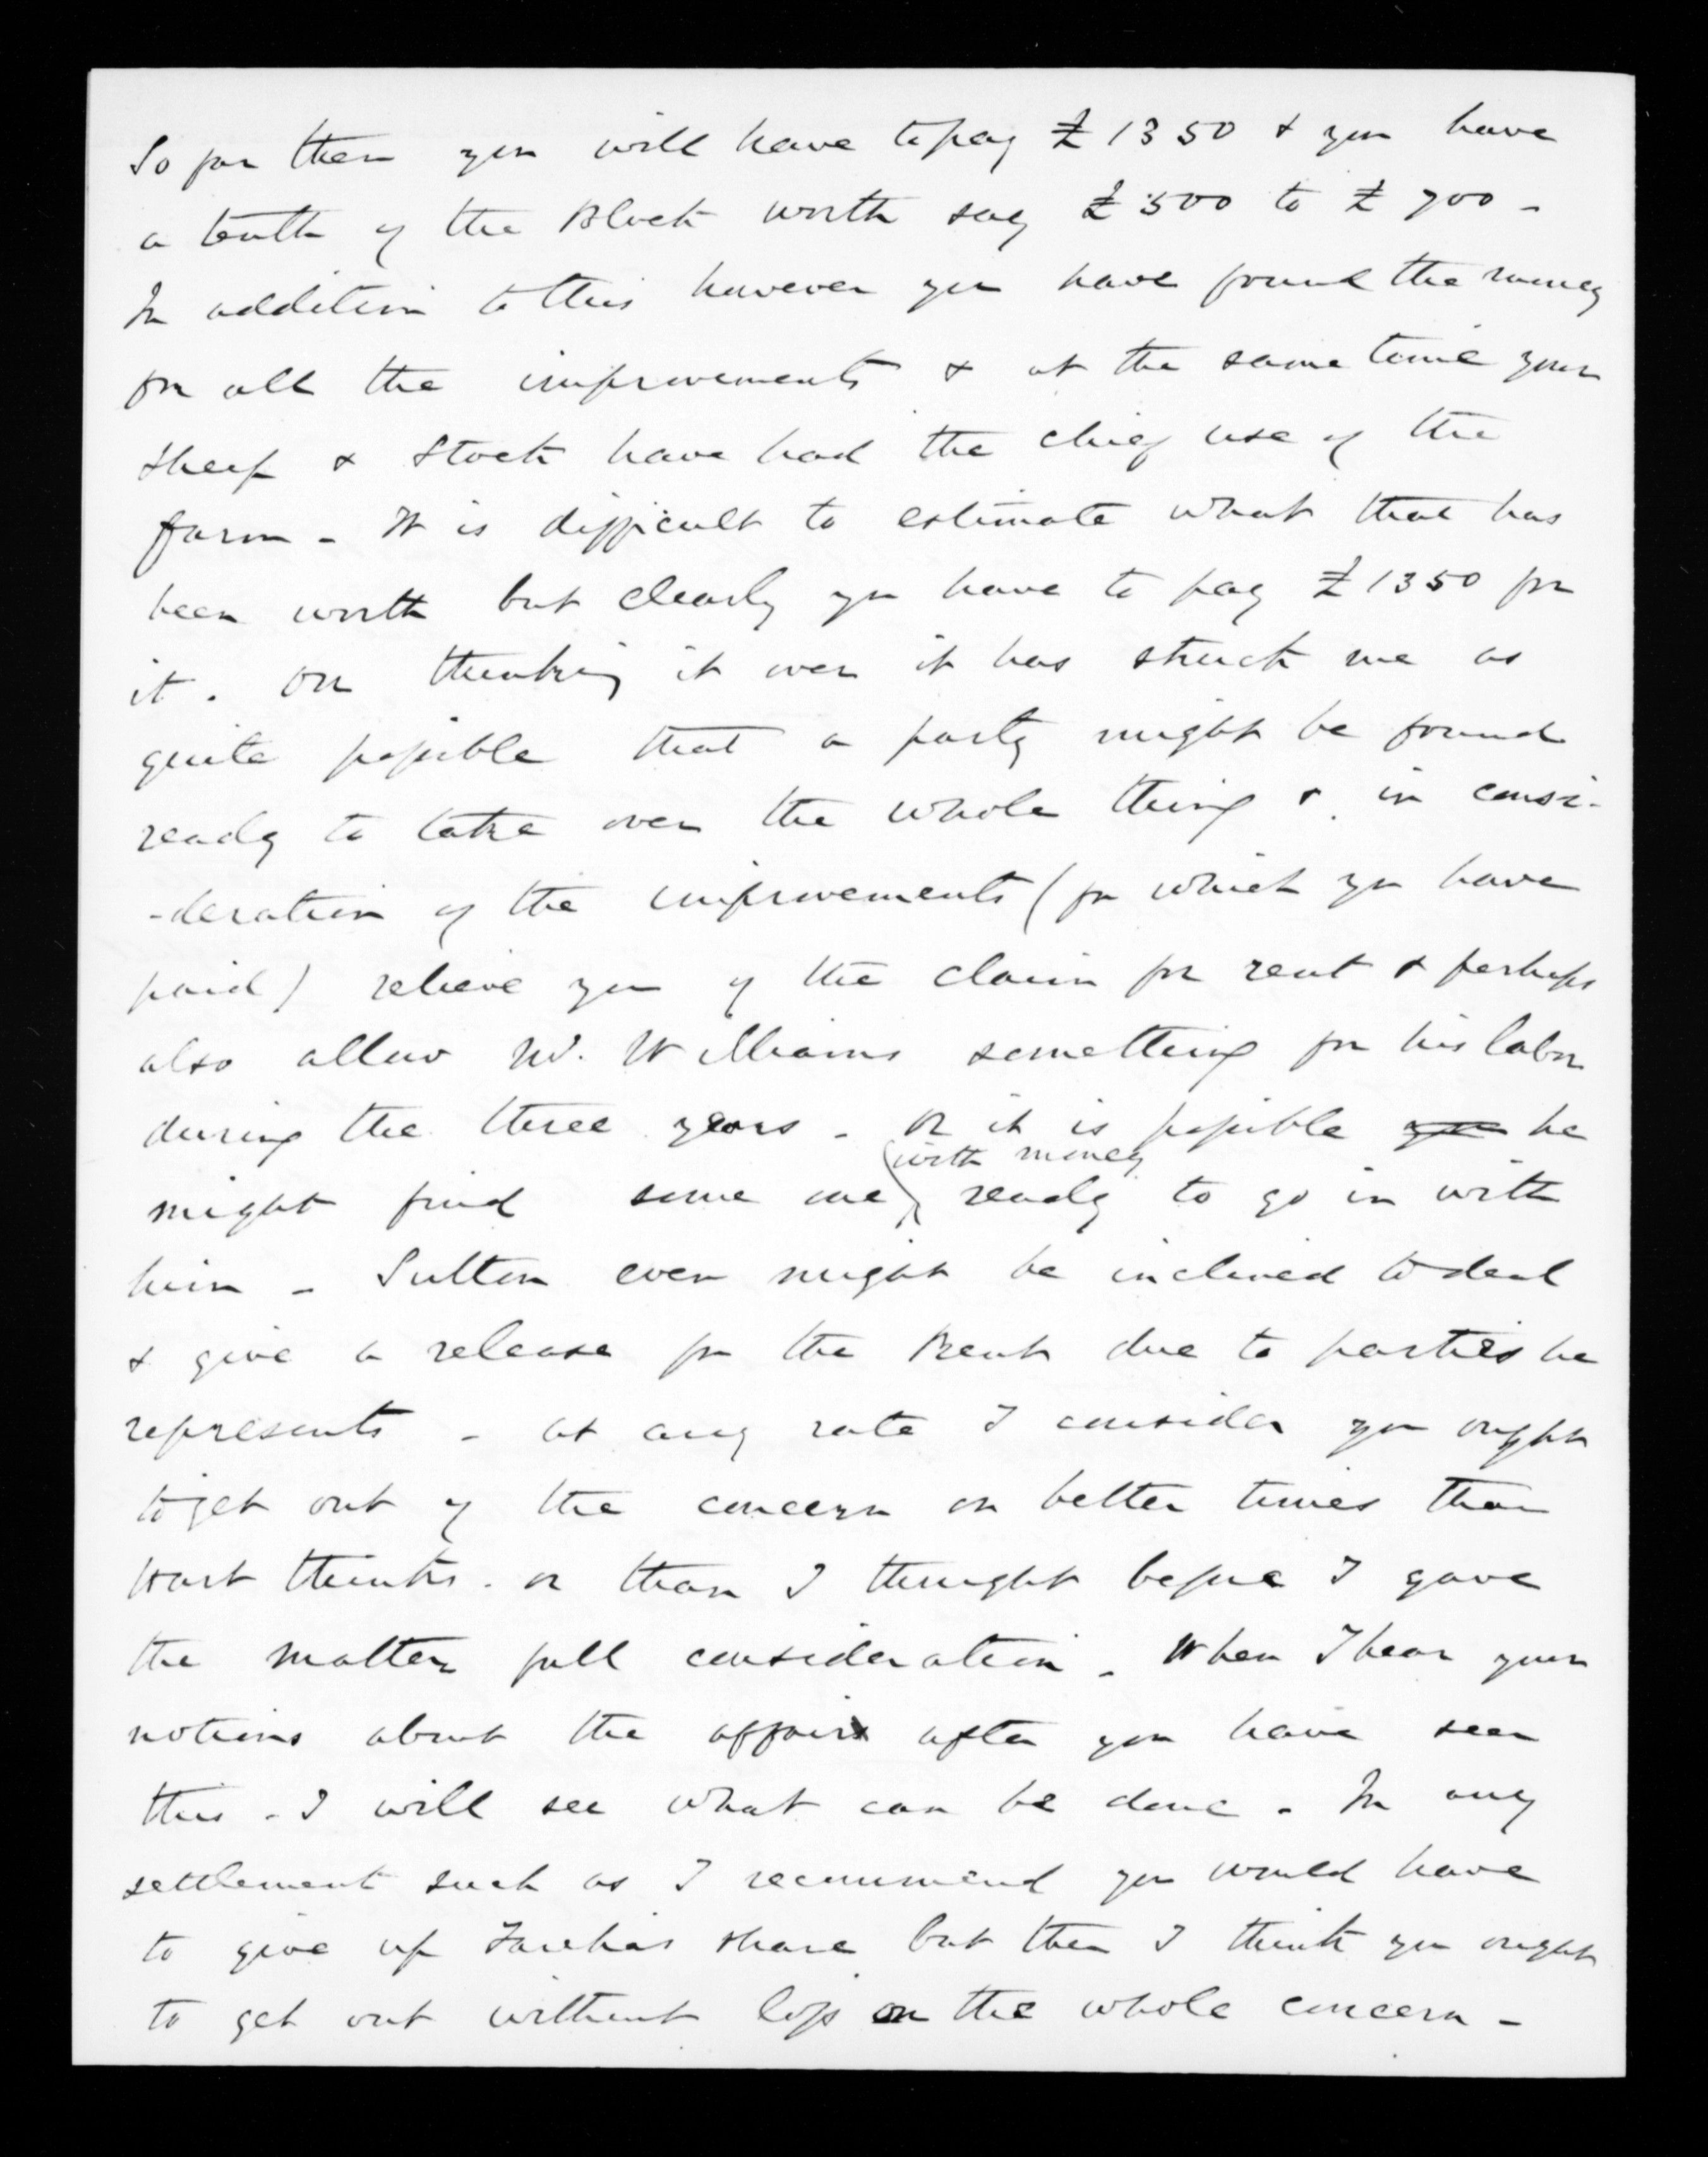 So far then you will have to pay £1350 & you have
a tenth of the Block worth say £500 to £700 -
In addition to this however you have found the money
for all the improvements & at the same time your
sheep & stock have had the chief use of the
farm - It is difficult to estimate what that has
been worth but clearly you have to pay £1350 for
it. On thinking it over it has struck me as
quite possible that a party might be found
ready to take over the whole thing & in consi-
-deration of the improvements (for which you have
paid) relieve you of the claim for rent & perhaps
also allow W. Williams something for his labor
during the three years - Or it is possible you he
(with money
might find some one ready to go in with
him - Sutton even might be inclined to deal
& give a release for the Rent due to parties he
represents - at any rate I consider you ought
to get out of the concern on better times than
thinks. or than I thought before I gave
the matter full consideration - When I hear your
notions about the affair after you have seen
this - I will see what can be done - In any
settlement such as I recommend you would have
to give up share but then I think you ought
to get out without loss on the whole concern -